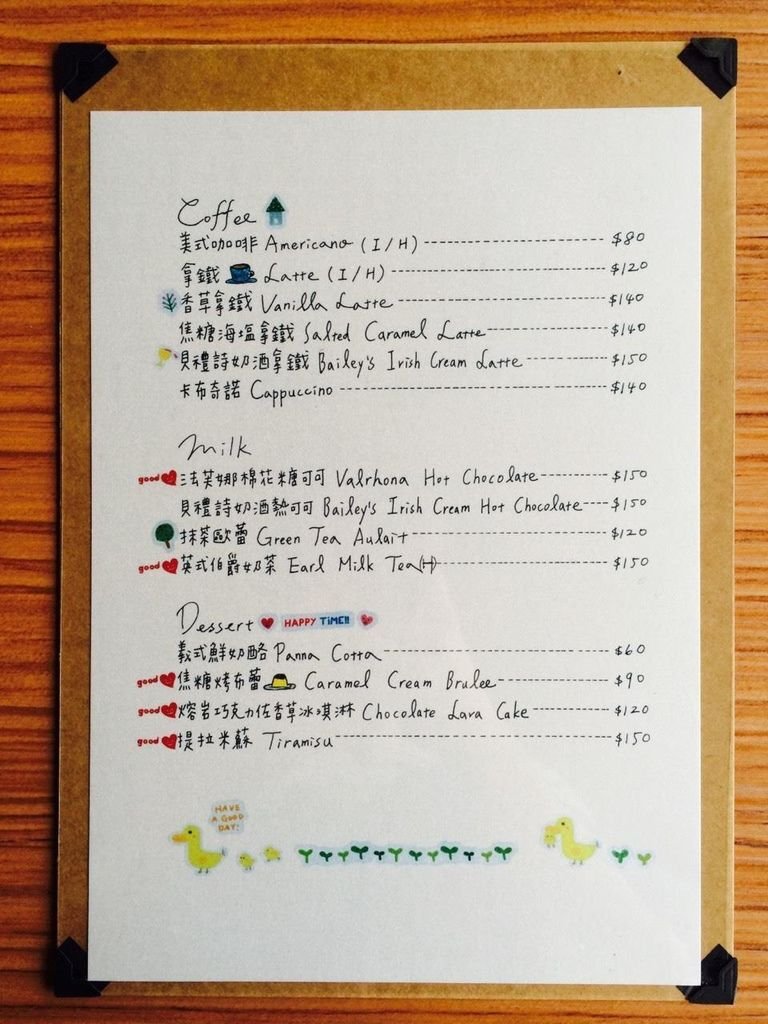 Coffee
美式咖啡 Americano (I/H) ---------- $80
拿鐵 Latte (I/H) ---------- $120
香草拿鐵 Vanilla Latte ---------- $140
焦糖海塩拿鐵 Salted Caramel Latte ---------- $140
貝禮詩奶酒拿鐵 Bailey's Irish Cream Latte ---------- $150
卡布奇諾 Cappuccino ---------- $140
Milk
good 法芙娜棉花糖可可 Valrhona Hot Chocolate ---------- $150
貝禮詩奶酒熱可可 Bailey's Irish Cream Hot Chocolate ---------- $150
抹茶歐蕾 Green Tea Aulait ---------- $120
good 英式伯爵奶茶 Earl Milk Tea(H) ---------- $150
Dessert HAPPY TIME!!
義式鮮奶酪 Panna Cotta ---------- $60
good 焦糖烤布蕾 Caramel Cream Brulee ---------- $90
good 熔岩巧克力佐香草冰淇淋 Chocolate Lava Cake ---------- $120
good 提拉米蘇 Tiramisu ---------- $150
HAVE
A GOOD
DAY!